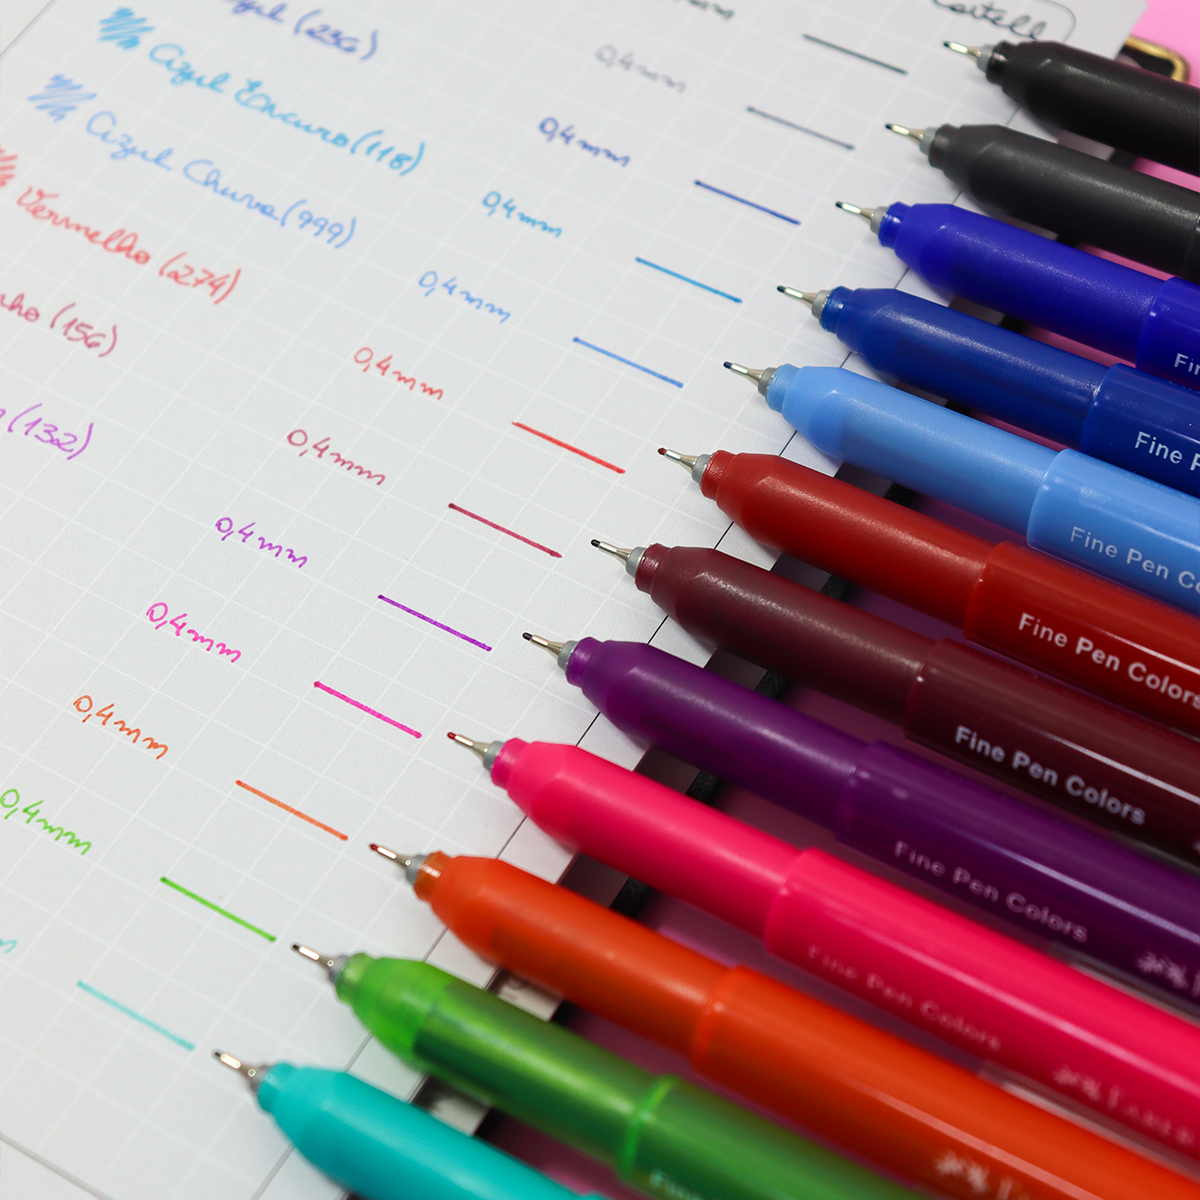 astell
mm
Azul (236)
0,4mm
Azul Escuro (118)
0,4mm
Azul Chuva (999)
0,4mm
Vermelho (274)
0,4mm
nho (156)
0,4mm
(132)
0,4mm
0,4mm
0,4mm
0,4mm
0,4mm
Fin
Fine P
Fine Pen Co
Fine Pen Colors
Fine Pen Colors
Fine Pen Colors
Fine Pen Colors
Fine